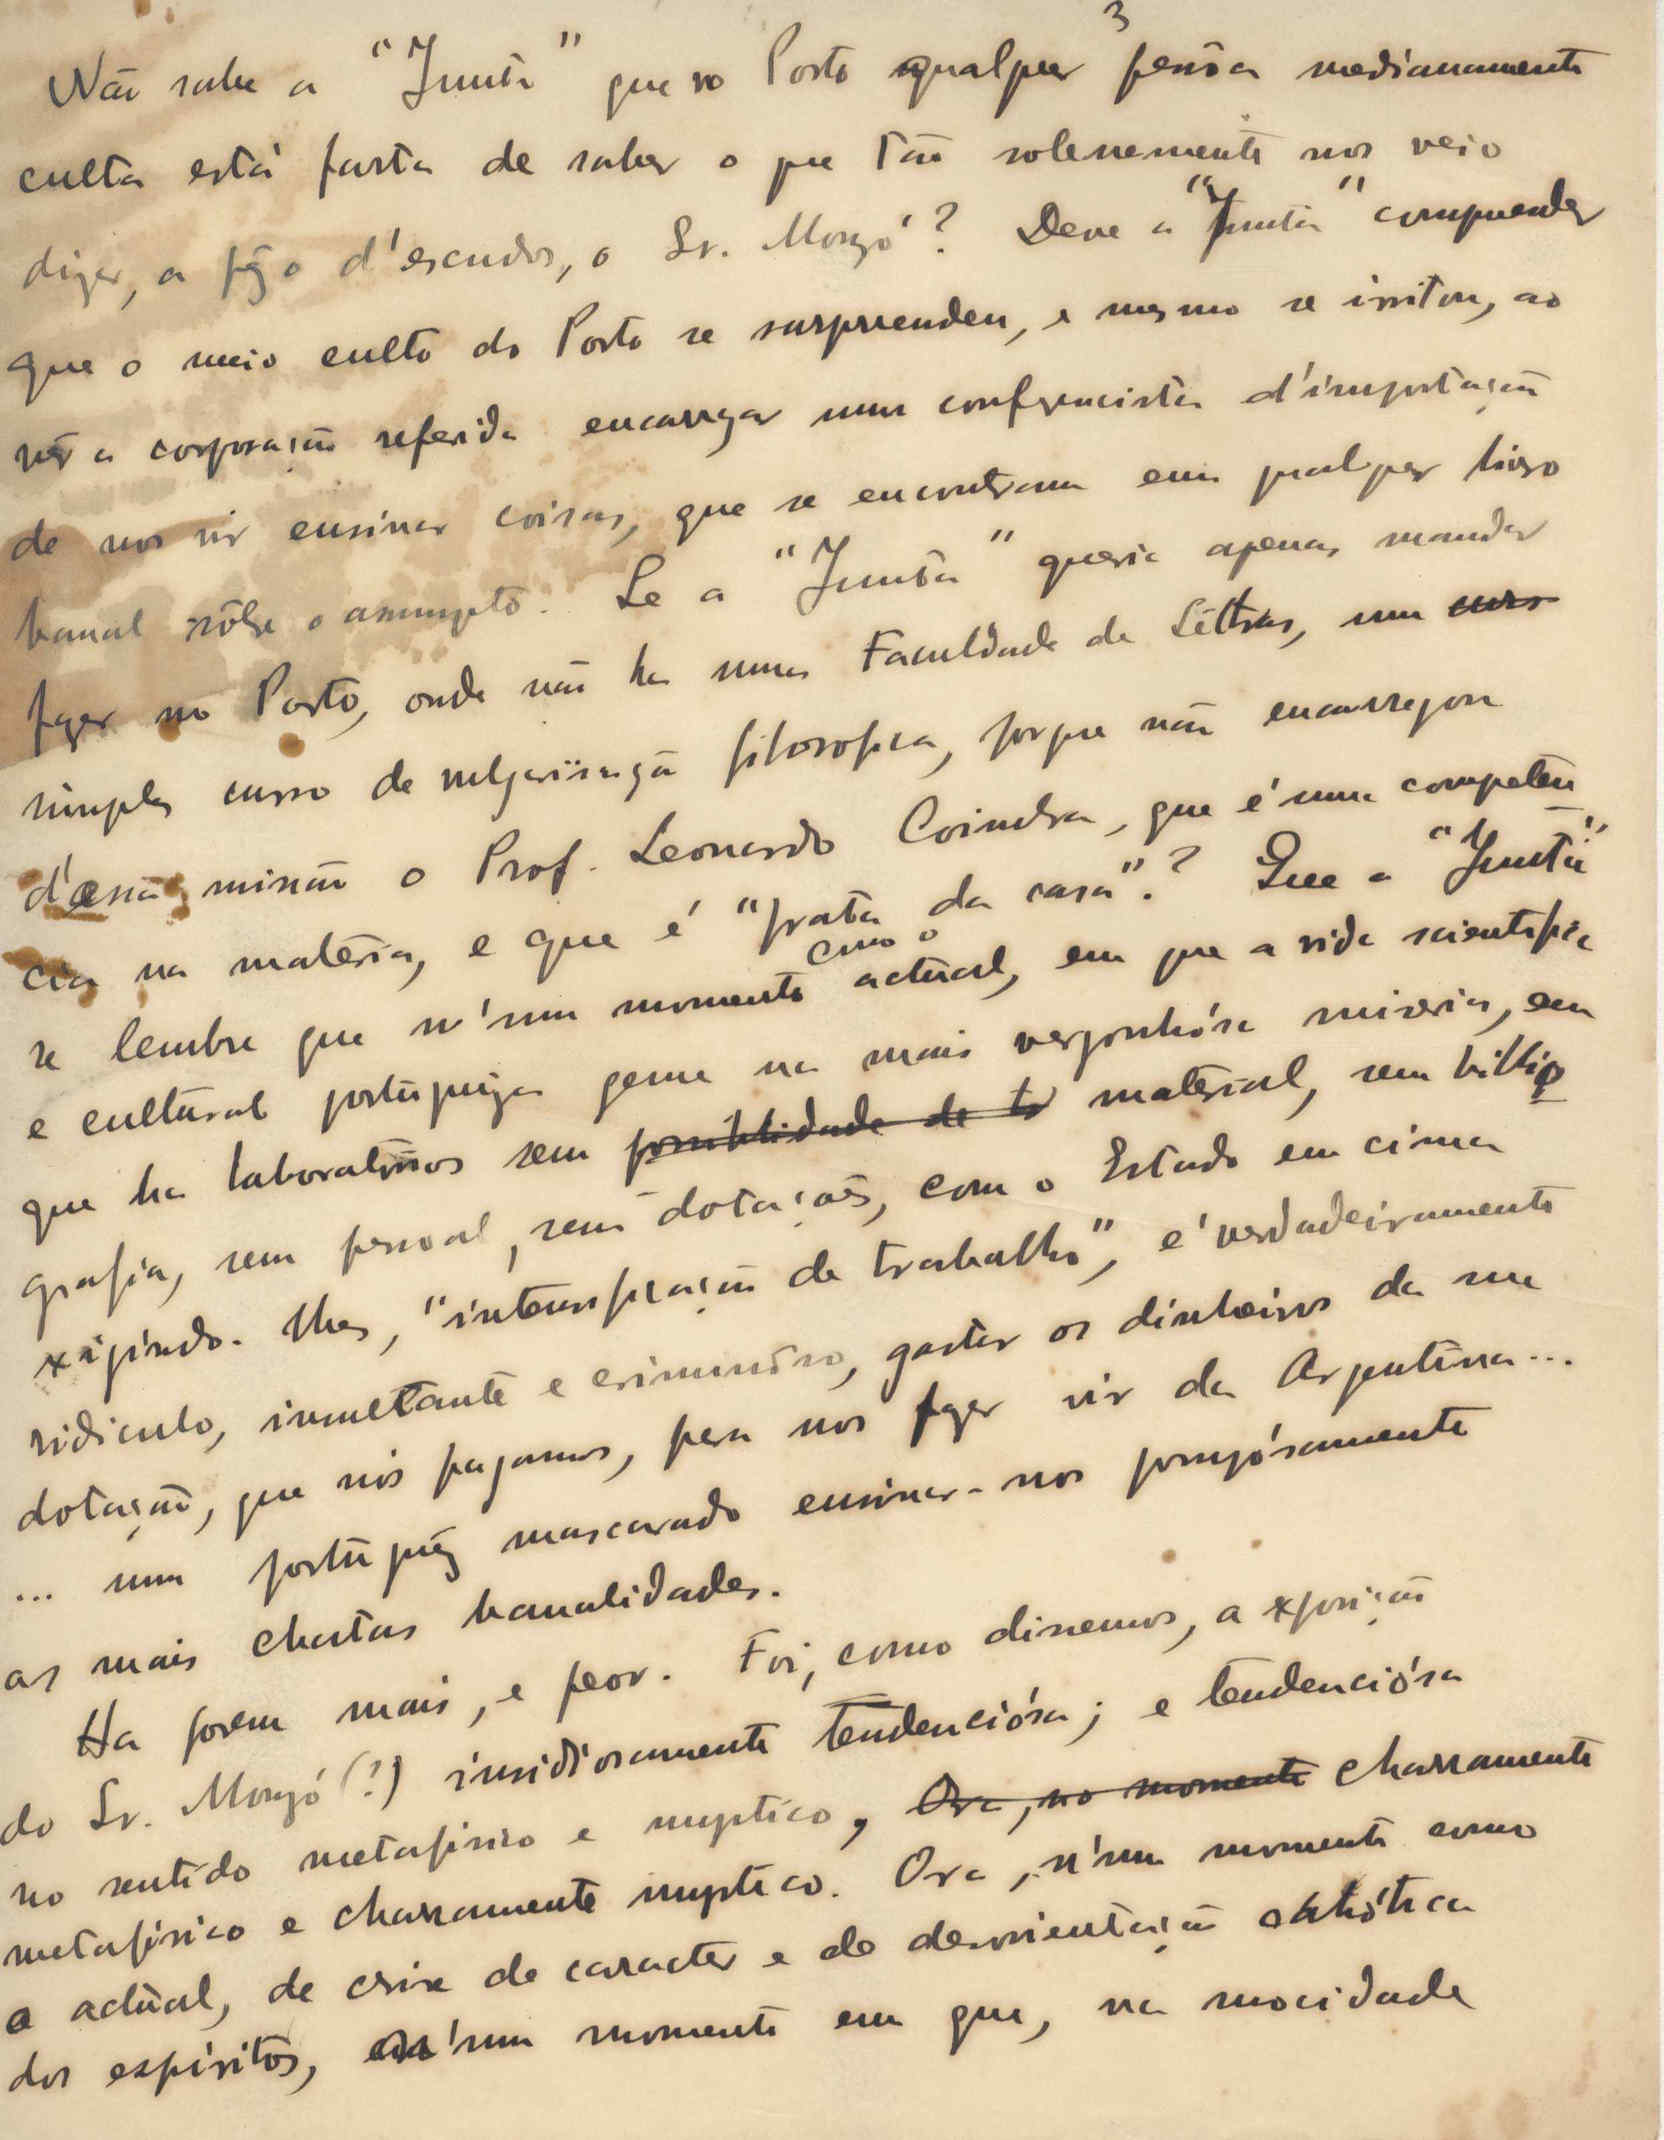 3
Não sabe a "Junta" que no Porto qualquer pessôa medianamente
culta está farta de saber o que tão solenemente nos veio
dizer, a pêzo d'escudos, o Sr. Monzó? Deve a "Junta" compreender
que o meio culto do Porto se surpreendeu, e mesmo se irritou, ao
vêr a corporação referida encarregar um conferencista d'importação
de nos vir ensinar coisas, que se encontram em qualquer livro
banal sôbre o assumpto. Se a "Junta" queria apenas mandar
fazer no Porto, onde não ha uma Faculdade de Lettras, um curso
simples curso de vulgarisação filosofica, porque não encarregou
d'essa missão o Prof. Leonardo Coimbra, que é uma competên
cia na matéria, e que é "prata da casa".? Que a "Junta"
se lembre que n'um momento como o actual, em que a vida scientifica
e cultural portuguêza geme na mais vergonhósa miseria, em
que ha laboratórios sem possiblidade de ter material, sem biblio
grafia, sem pessoal, sem dotações, com o Estado em cima
xigindo-lhes, "intensificação de trabalho", é verdadeiramente
ridiculo, insultante e criminôso, gastar os dinheiros da sua
dotação, que nós pagamos, para nos fazer vir da Argentina...
... um portuguêz mascarado ensinar-nos pompósamente
as mais chatas banalidades.
Ha porem mais, e peor. Foi, como dissemos, a xposição
do Sr. Monzó (!) insidiosamente tendenciósa; e tendenciósa
no sentido metafisico e mystico, Ora, no momento charramente
metafisico e charramente mystico. Ora, n'um momento como
o actual, de crise de caracter e de desorientação cahótica
dos espiritos, n'um momento em que, na mocidade